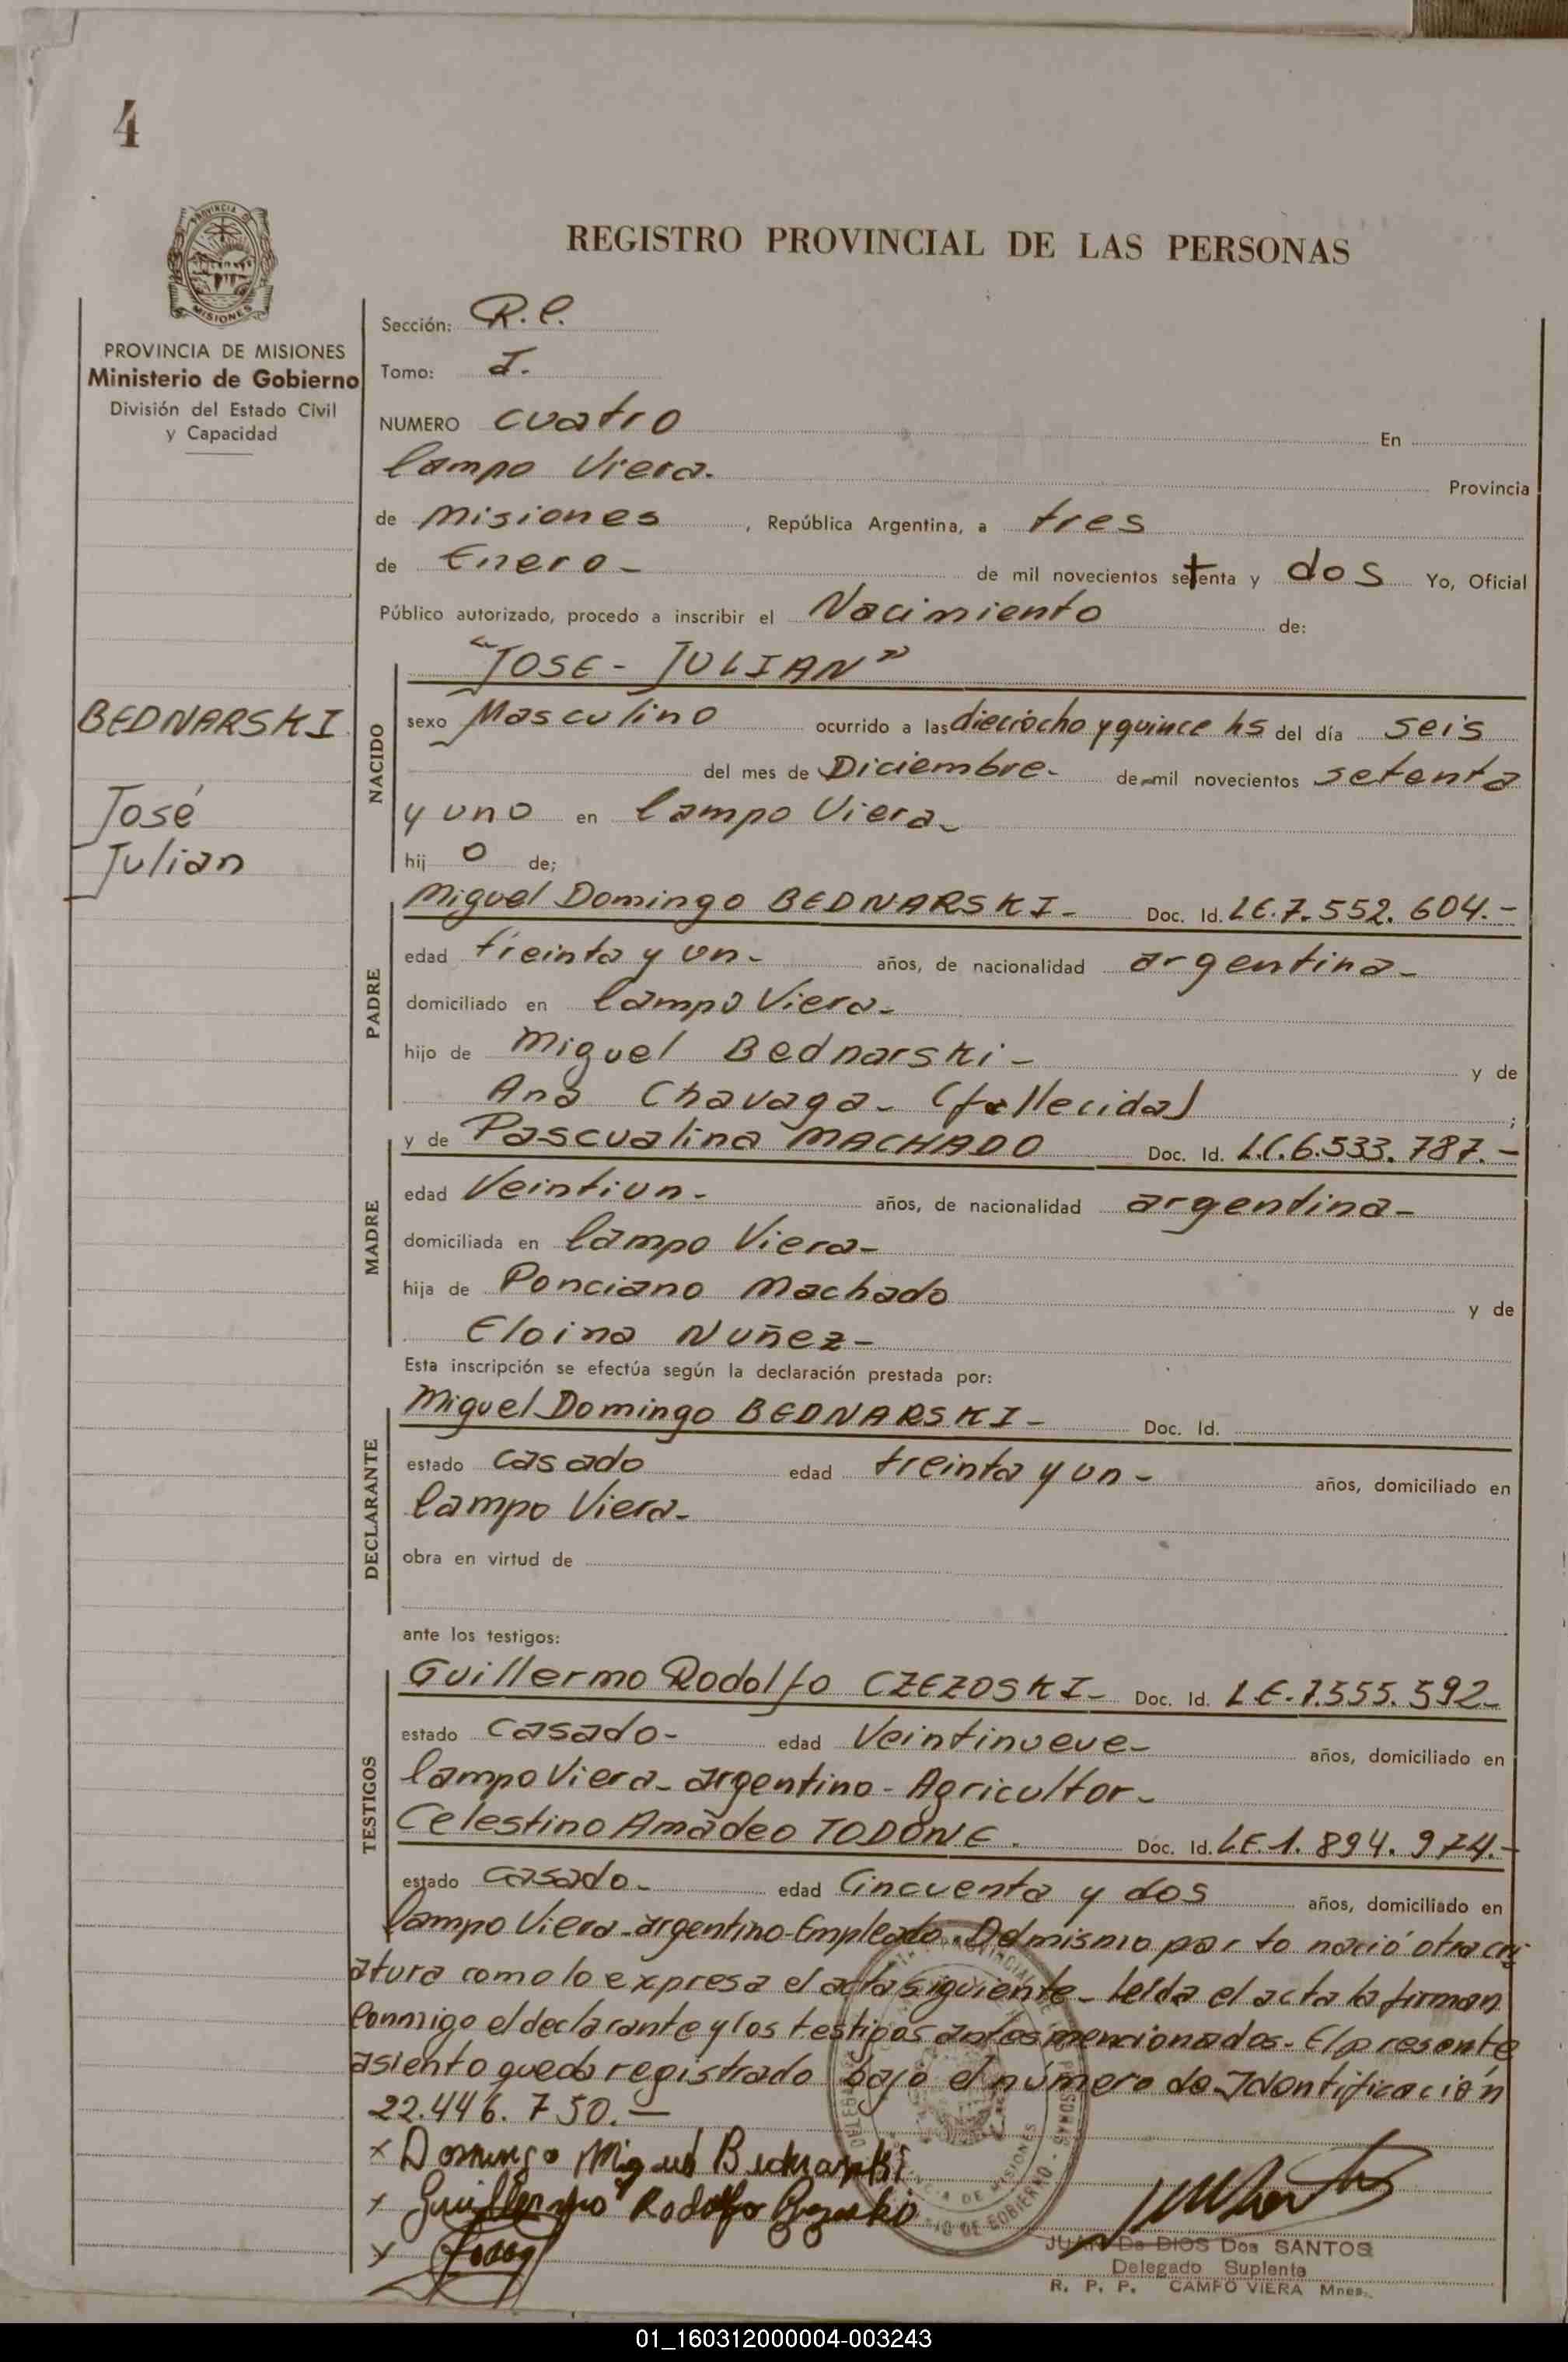 4
PROVINCIA DE
MISIONES
REGISTRO PROVINCIAL DE LAS PERSONAS
PROVINCIA DE MISIONES
Ministerio de Gobierno
División del Estado Civil
y Capacidad
BEDNARSKI
José
Julian
Sección: R.C.
Tomo: I.
NUMERO cuatro En
Campo Viera. Provincia
de Misiones, República Argentina, a tres
de Enero- de mil novecientos setenta y dos Yo, Oficial
Público autorizado, procedo a inscribir el Nacimiento de:
NACIDO
"JOSE- JULIAN"
sexo Masculino ocurrido a las dieciocho y quince hs del día seis
del mes de Diciembre- de mil novecientos setenta
y uno en Campo Viera-
hij o de;
PADRE
Miguel Domingo BEDNARSKI- Doc. Id. LE.7.552.604.-
edad treinta y un- años, de nacionalidad argentina-
domiciliado en Campo Viera-
hijo de Miguel Bednarski- y de
Ana Chavaga- (fallecida) ;
MADRE
y de Pascualina MACHADO Doc. Id. L.C.6.533.787.-
edad Veintiun- años, de nacionalidad argentina-
domiciliada en Campo Viera-
hija de Ponciano Machado y de
Eloina Nuñez-
Esta inscripción se efectúa según la declaración prestada por:
DECLARANTE
Miguel Domingo BEDNARSKI- Doc. Id.
estado casado edad treinta y un- años, domiciliado en
Campo Viera-
obra en virtud de
ante los testigos:
TESTIGOS
Guillermo Rodolfo CZEZOSKI- Doc. Id. LE.7.555.592-
estado casado- edad Veintinueve- años, domiciliado en
Campo Viera- argentino- Agricultor-
Celestino Amadeo TODONE. Doc. Id. LE.1.894.974.-
estado casado- edad Cincuenta y dos años, domiciliado en
Campo Viera-argentino-Empleado. Del mismo parto nació otra cri
atura como lo expresa el acta siguiente- leida el acta la firman
Conmigo el declarante y los testigos antes mencionados- El presente
asiento queda registrado bajo el número de Identificación
22.446.750.-
x Domingo Miguel Bednarski
x Guillermo Rodolfo
x
JUAN De DIOS Dos SANTOS
Delegado Suplente
R. P. P. CAMPO VIERA Mnes.
01_160312000004-003243